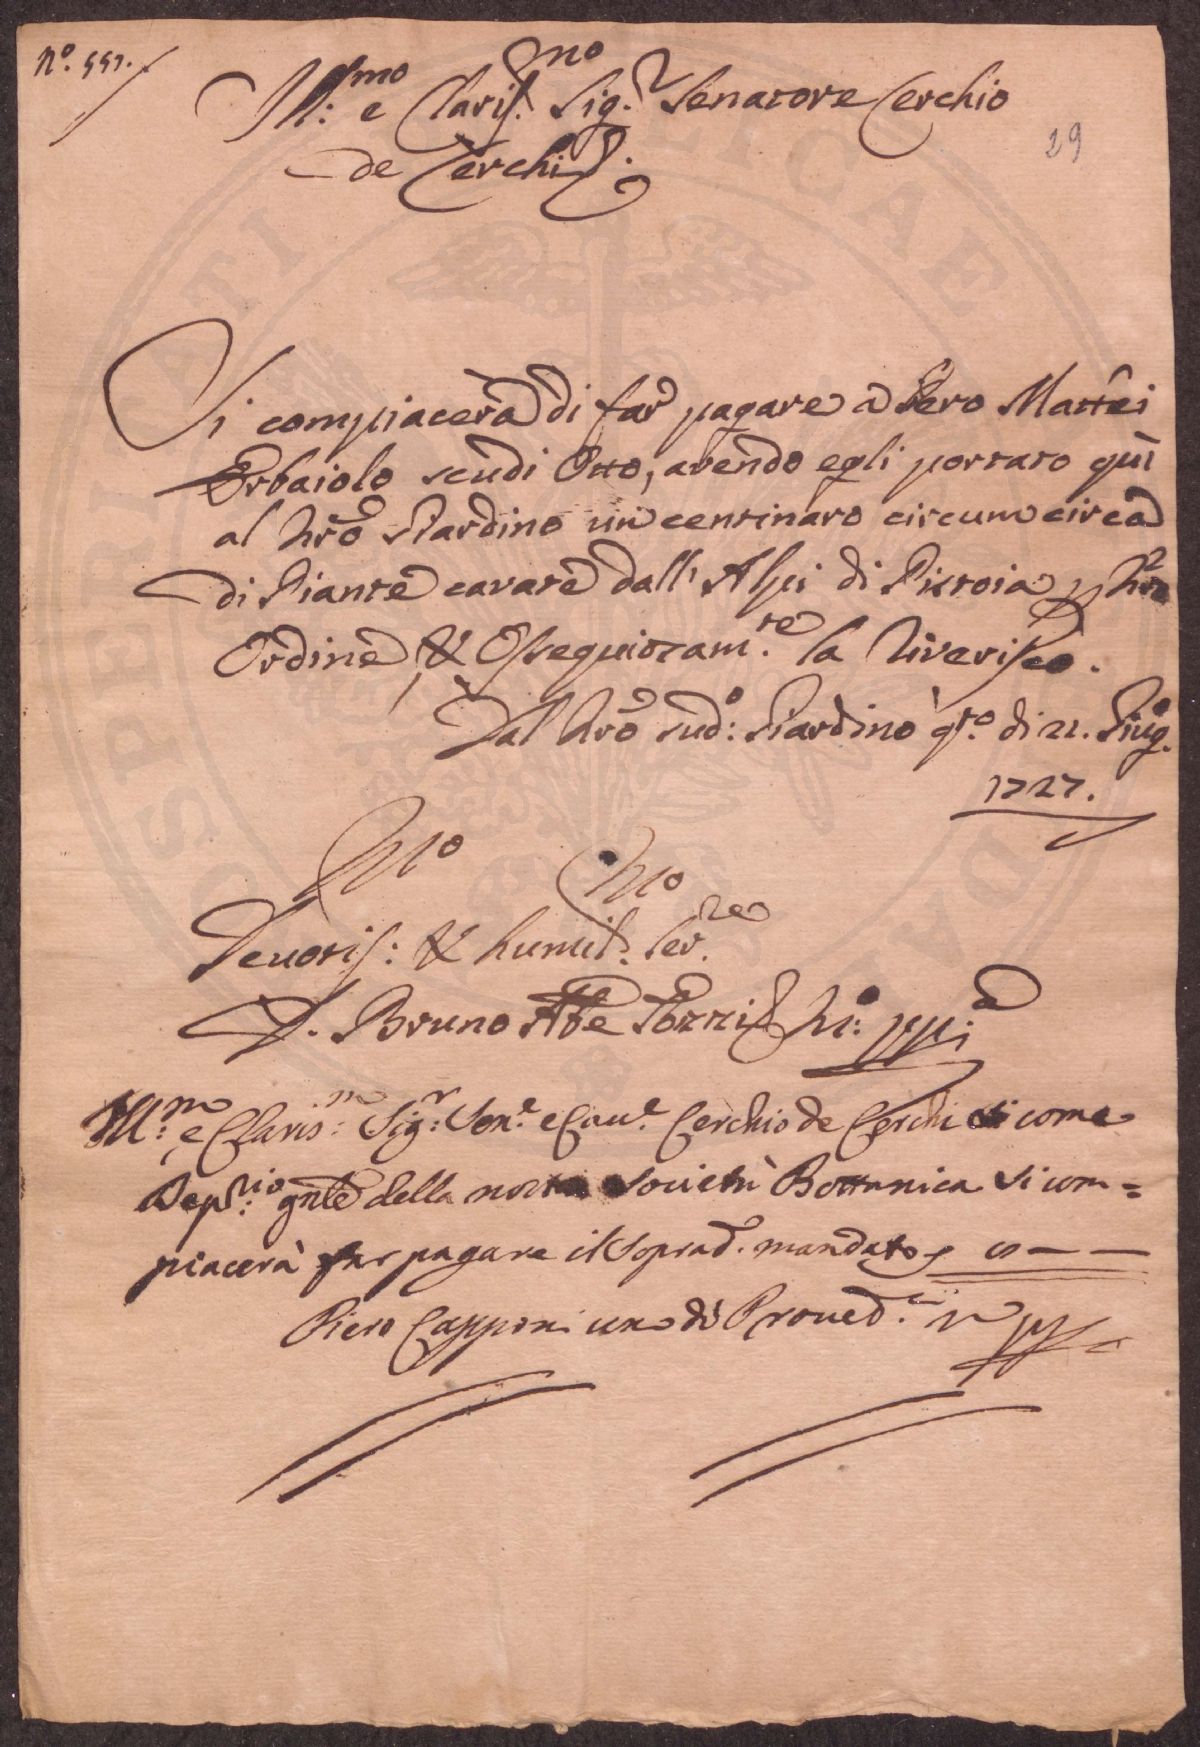 N.º 557.
Ill:mo e Claris.mo Sig.r Senatore Cerchio
de Cerchi.
29
Si compiacerà di far pagare a Piero Mattei
Erbaiolo scudi Otto, avendo egli portato quì
al nrõ Giardino un centinaro circum circa
di Piante cavate dall'Alpi di Pistoia p nrõ
Ordine, & Ossequiosam.te la riverisco.
Dal nrõ sud:o Giardino q.to di 21. Giug.o
1727.
Devotis:mo & humil.mo ser.re
D. Bruno Abe Tozzi mº: pp:a
Ill:mo e Claris:mo Sig:r Sen.e e Cau.e Cerchio de Cerchi si come
Dep:rio gnlẽ della nostra Società Bottanica si com=
piacerà far pagare il soprad.º mandato
Piero Capponi uno di Proued.ri
OSPERITATI PUBLICAE